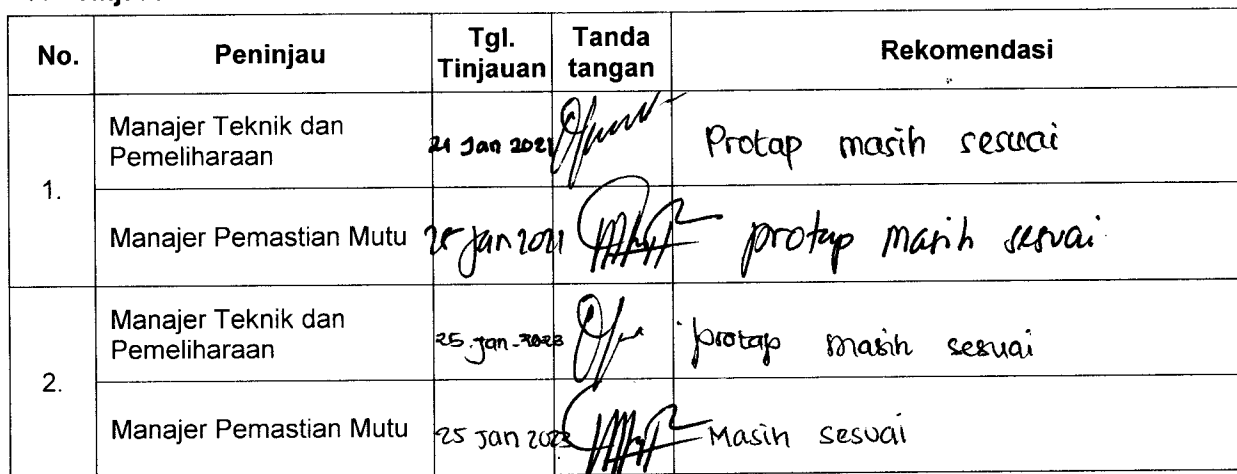 No. Peninjau Tgl. Tinjauan Tanda tangan Rekomendasi
1. Manajer Teknik dan Pemeliharaan 21 Jan 2021 Protap masih sesuai
Manajer Pemastian Mutu 25 Jan 2021 protap masih sesuai
2. Manajer Teknik dan Pemeliharaan 25 Jan - 2023 protap masih sesuai
Manajer Pemastian Mutu 25 Jan 2023 Masih sesuai